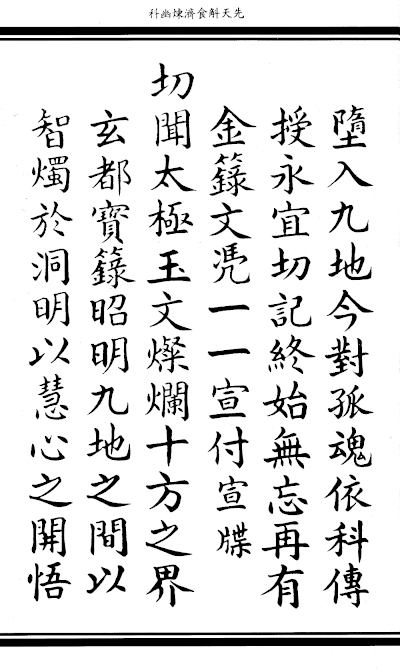 先天斛食濟煉幽科
墮入九地今對孤魂依科傳
授永宜切記終始無忘再有
金籙文凴一一宣付宣牒
切聞太極玉文燦爛十方之界
玄都寶籙昭明九地之間以
智燭於洞明以慧心之開悟